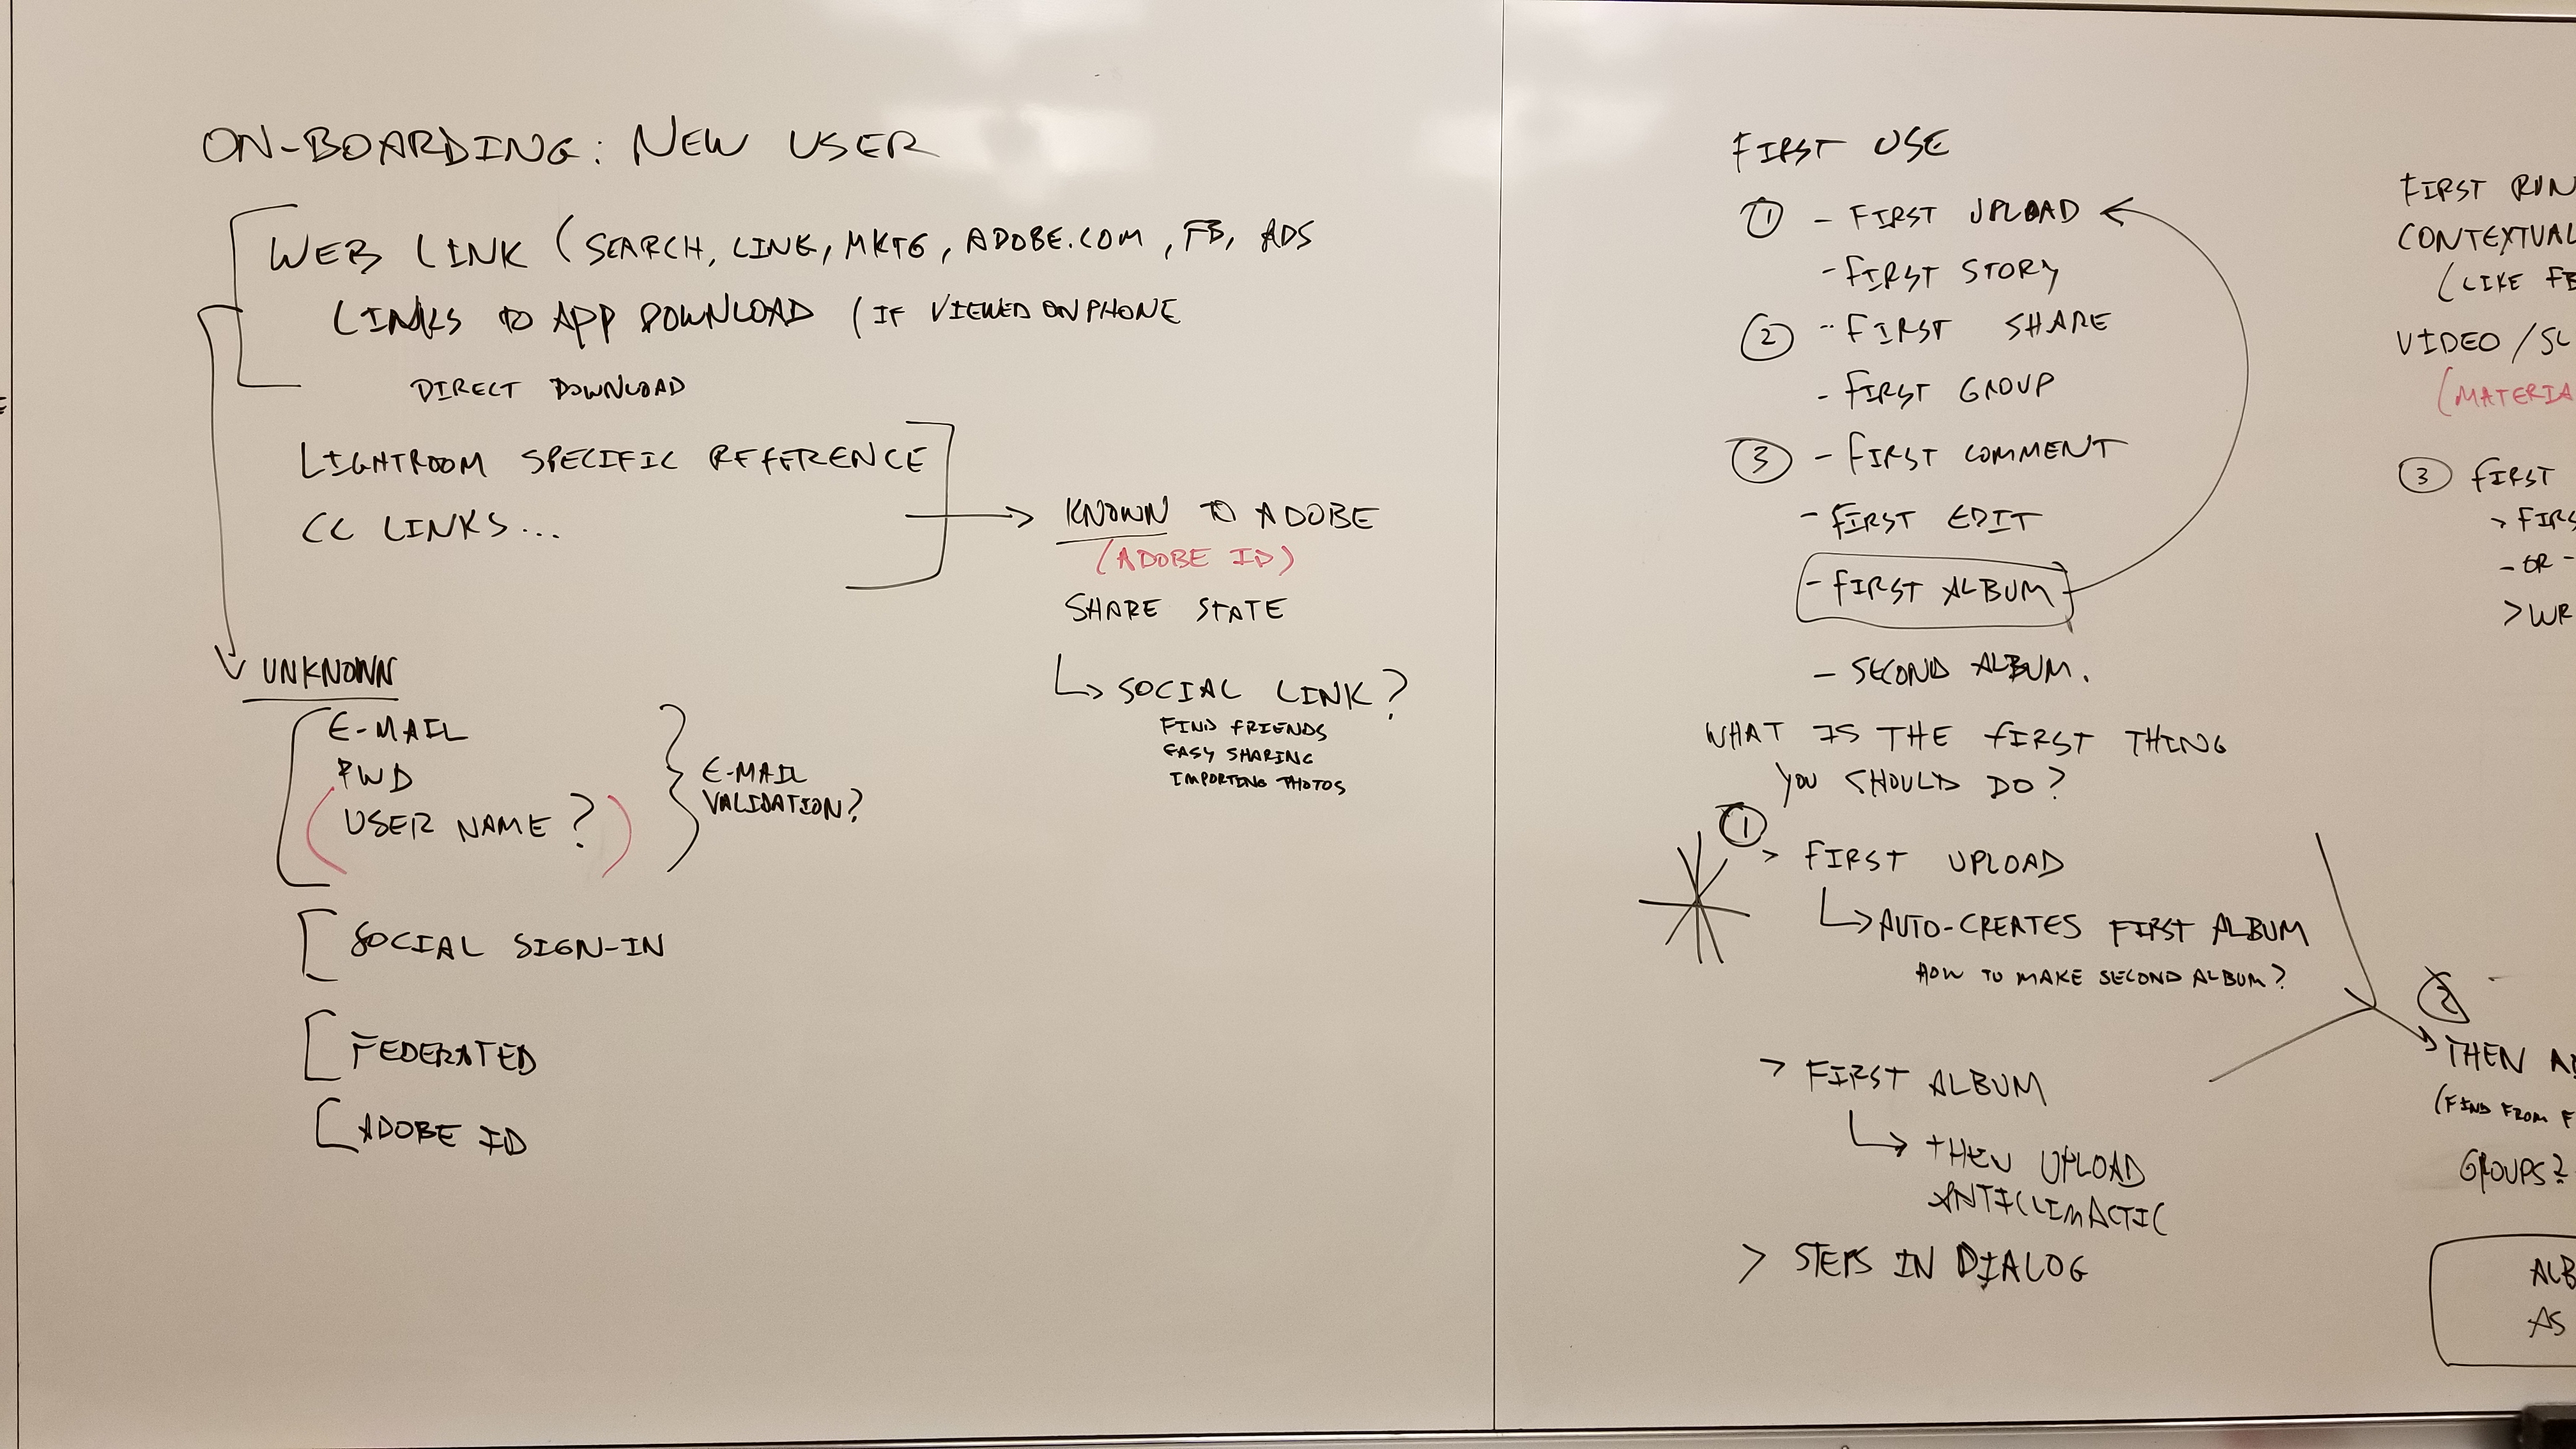 ON-BOARDING: NEW USER
WEB LINK (SEARCH, LINK, MKTG, ADOBE.COM, FB, ADS
LINKS TO APP DOWNLOAD (IF VIEWED ON PHONE
DIRECT DOWNLOAD
LIGHTROOM SPECIFIC REFERENCE
CC LINKS...
KNOWN TO ADOBE
(ADOBE ID)
SHARE STATE
SOCIAL LINK?
FIND FRIENDS
EASY SHARING
IMPORTING PHOTOS
UNKNOWN
E-MAIL
PWD
(USER NAME?)
E-MAIL
VALIDATION?
SOCIAL SIGN-IN
FEDERATED
ADOBE ID
FIRST USE
1 - FIRST UPLOAD
- FIRST STORY
2 - FIRST SHARE
- FIRST GROUP
3 - FIRST COMMENT
- FIRST EDIT
- FIRST ALBUM
- SECOND ALBUM.
WHAT IS THE FIRST THING
YOU SHOULD DO?
1
> FIRST UPLOAD
AUTO-CREATES FIRST ALBUM
HOW TO MAKE SECOND ALBUM?
> FIRST ALBUM
THEN UPLOAD
ANTICLIMACTIC
> STEPS IN DIALOG
FIRST RUN
CONTEXTUAL
(LIKE FB
VIDEO /
(MATERIA
3 FIRST
> FIRS
- OR -
> WR
2
THEN
(FIND FROM F
GROUPS?
ALB
AS